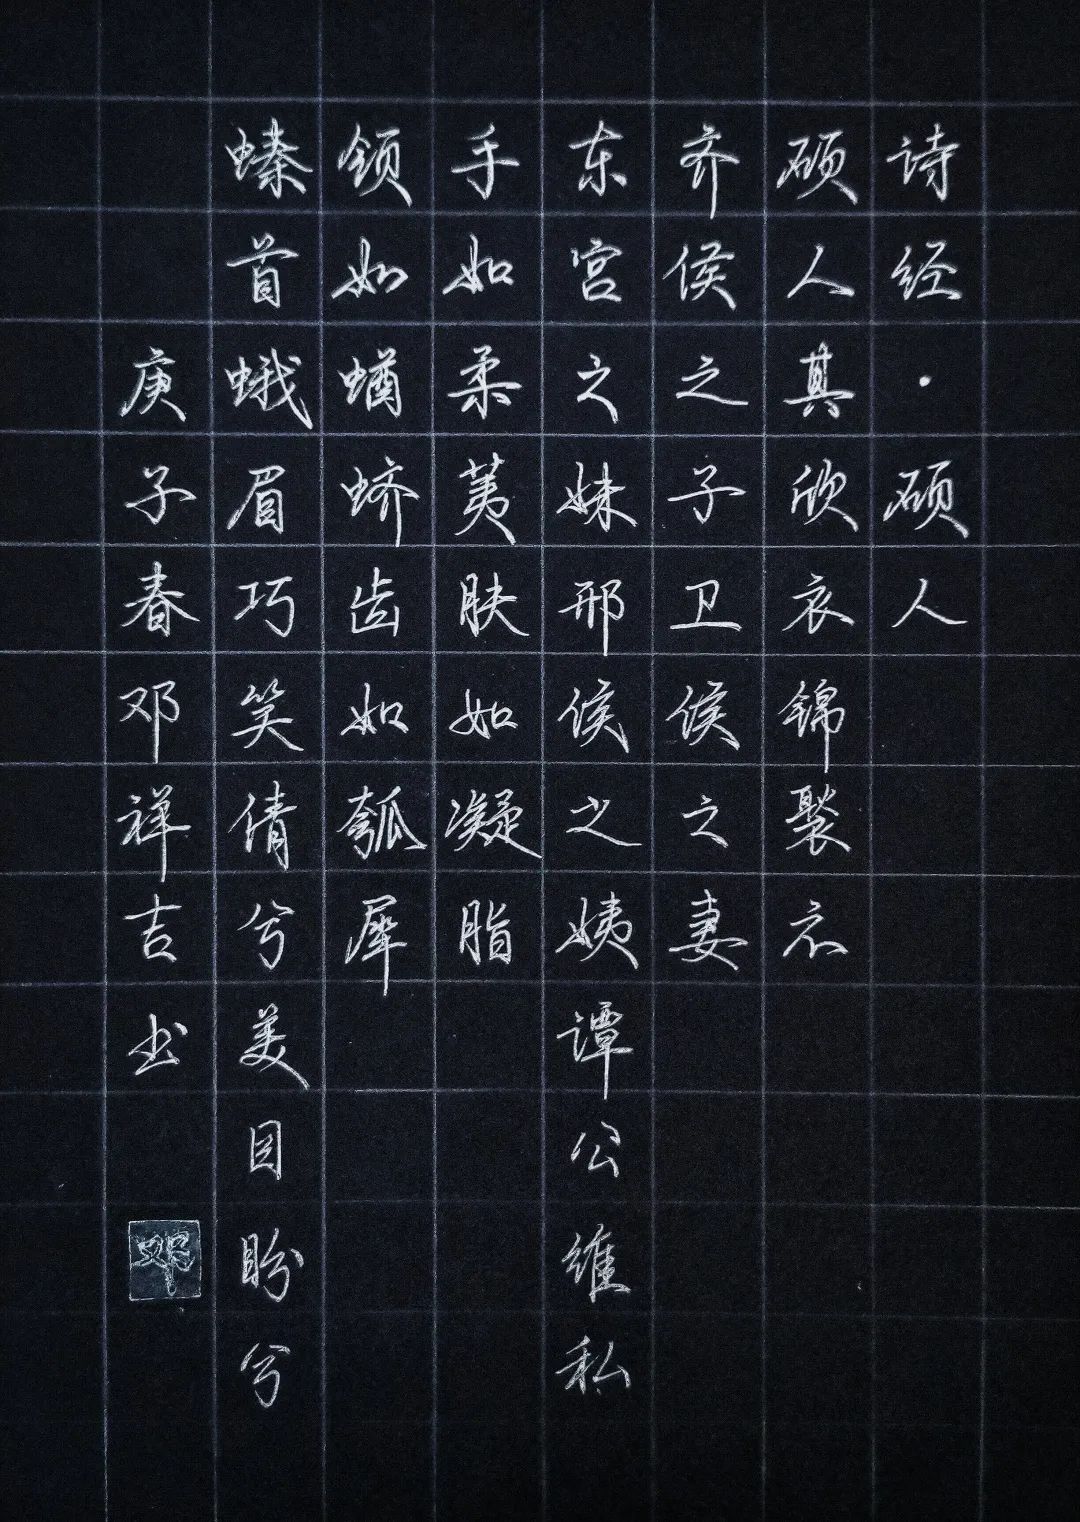 诗经·硕人
硕人其欣衣锦褧衣
齐侯之子卫侯之妻
东宫之妹邢侯之姨谭公维私
手如柔荑肤如凝脂
领如蝤蛴齿如瓠犀
螓首蛾眉巧笑倩兮美目盼兮
庚子春邓祥吉书
邓